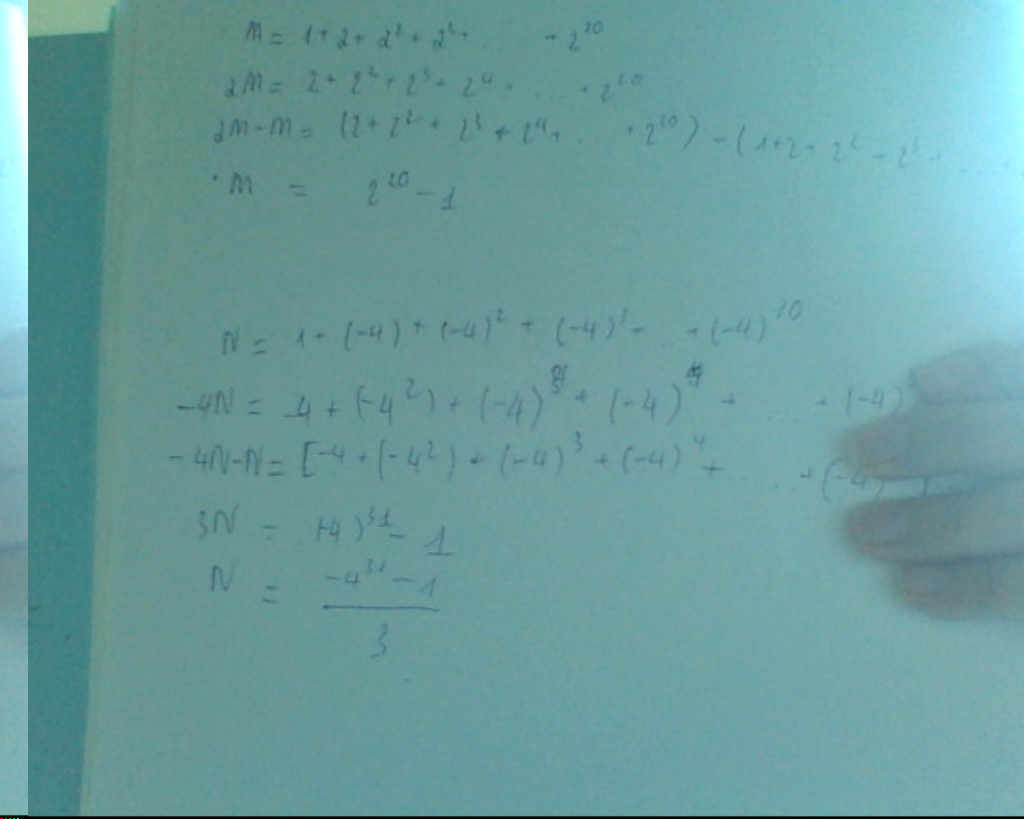 M = 1 + 2 + 2² + 2³ + ... + 2²⁰
2M = 2 + 2² + 2³ + 2⁴ + ... + 2²⁰
2M - M = (2 + 2² + 2³ + 2⁴ + ... + 2²⁰) - (1 + 2 + 2² + 2³ + ...
M = 2²⁰ - 1
N = 1 + (-4) + (-4)² + (-4)³ + ... + (-4)³⁰
-4N = -4 + (-4²) + (-4)³ + (-4)⁴ + ... + (-4)³
-4N-N = [-4 + (-4²) + (-4)³ + (-4)⁴ + ... + (-4)
3N = (-4)³¹ - 1
N = -4³¹ - 1
3